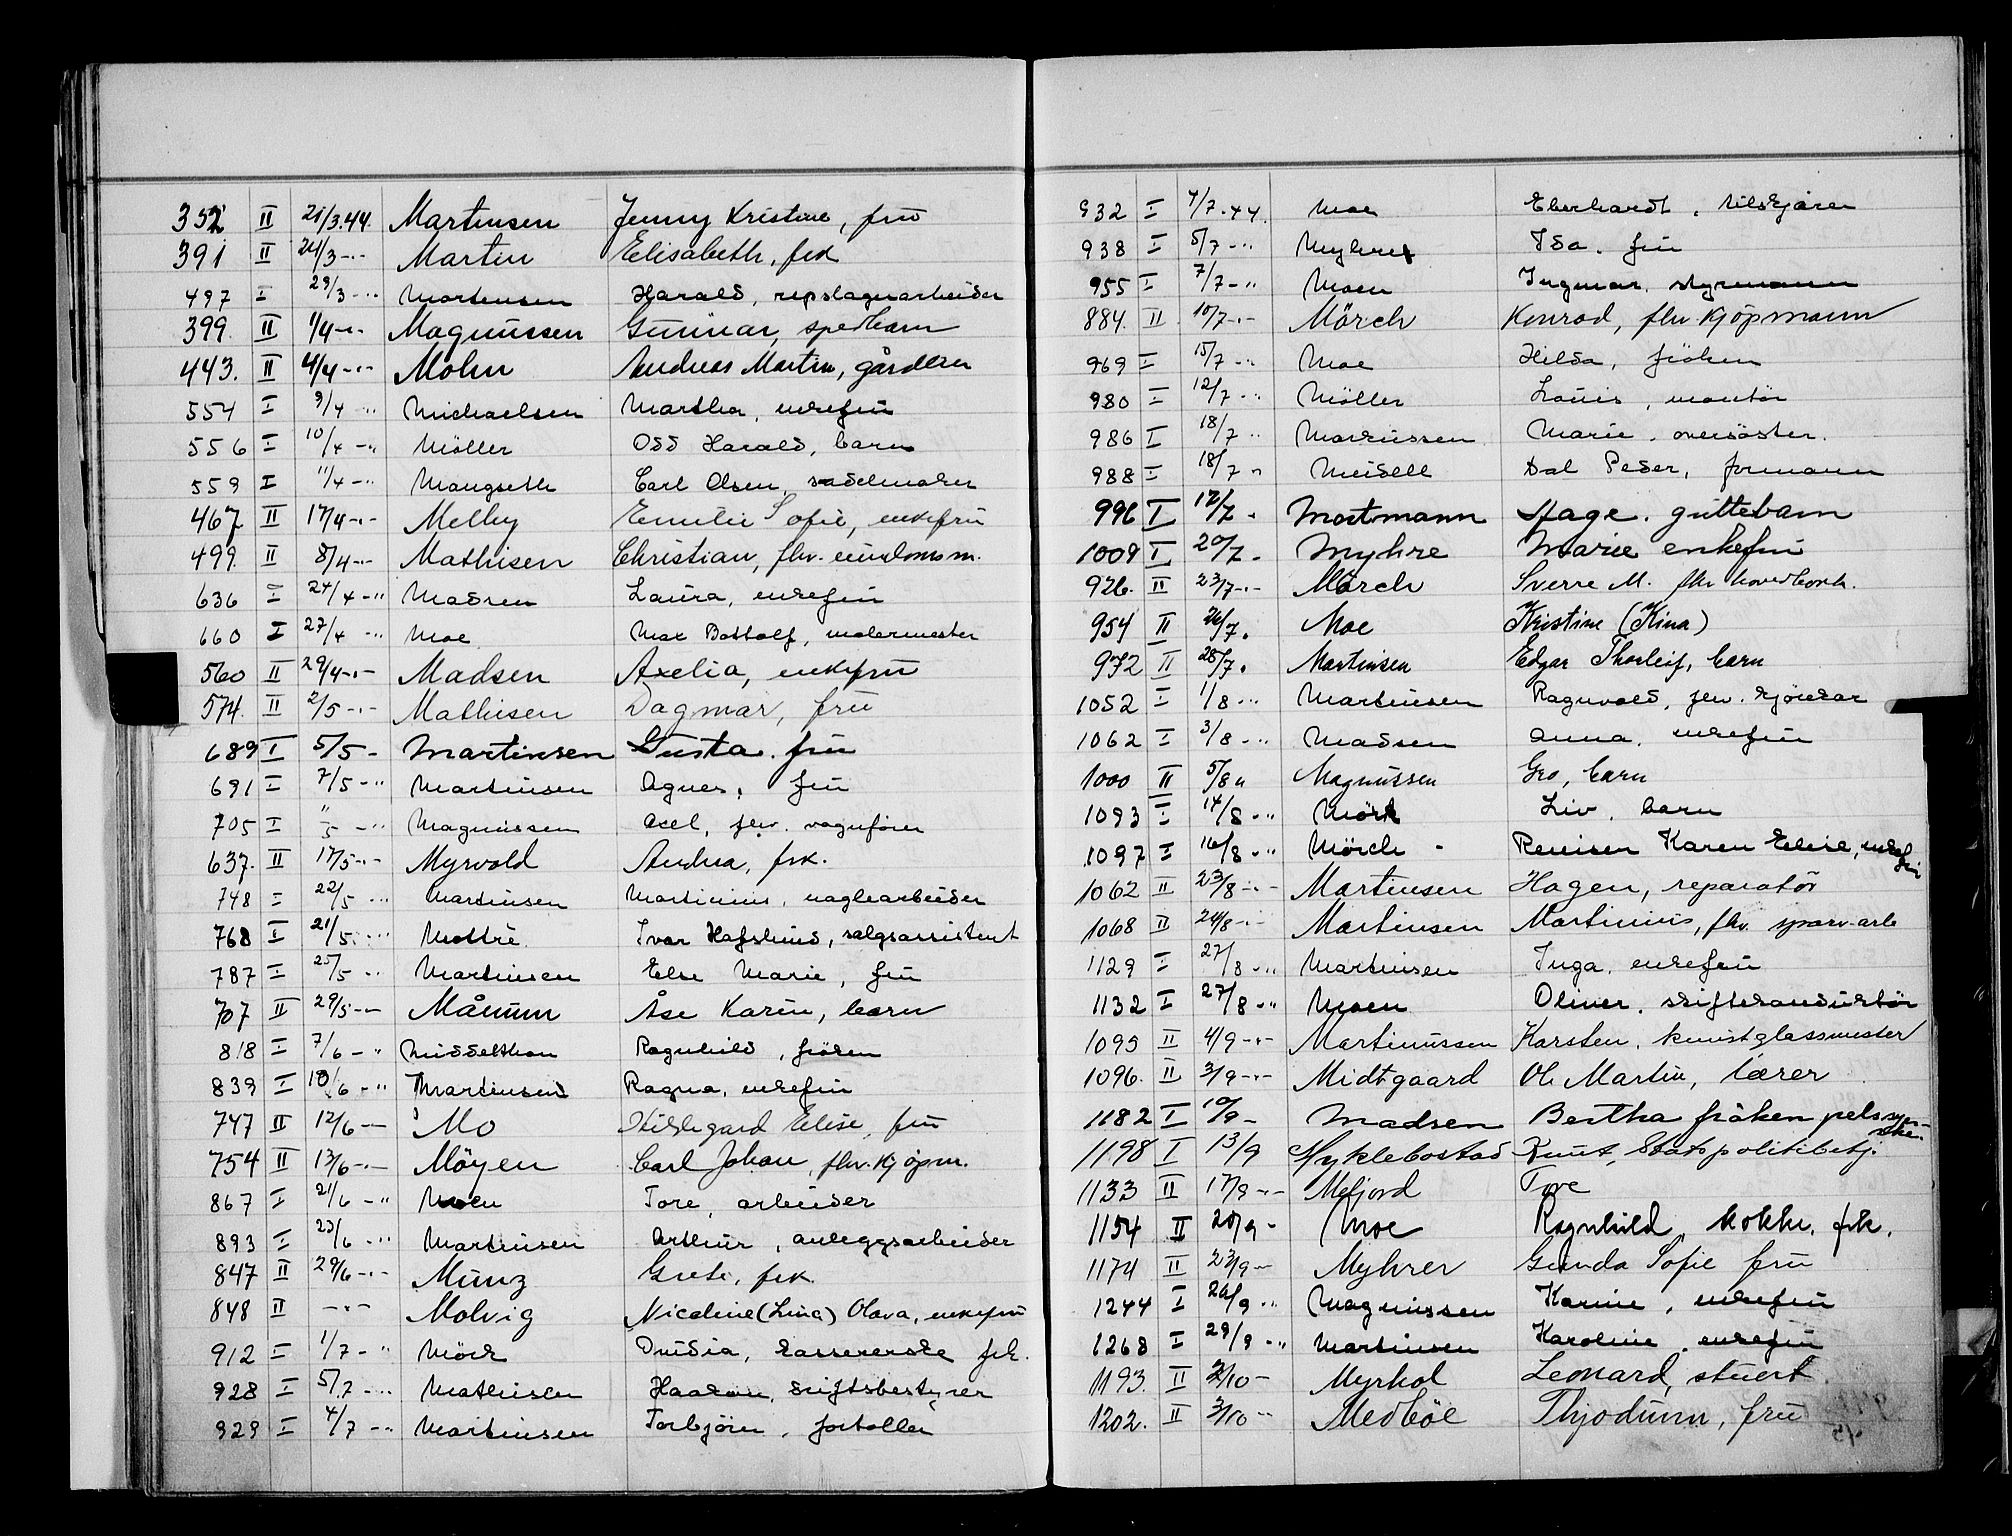 352 II 21/3.44. Martinsen Jenny Kristine, frü
391 II 24/3 -"- Martin Elisabeth, frk
497 I 29/3 -"- Mortensen Harald, repslagerarbeider
399. II 1/4 -"- Magnüssen Günnar, spedbarn
443. II 4/4 -"- Mohn Andreas Martin, gårdeier
554 I 9/4 -"- Michaelsen Martha, enkefrü
556 I 10/4 -"- Möller Odd Harald, barn
559 I 11/4 -"- Mangseth Carl Olsen, sadelmaker
467 II 17/4 -"- Melby Emilie Sofie, enkefrü
499. II 8/4 -"- Mathisen Christian, fhv. eiendomsm.
636 I 24/4 -"- Madsen Laüra, enkefrü
660 I 27/4 -"- Moe Max Bottolf, malermester
560 II 29/4 -"- Madsen Axelia, enkefrü
574. II 2/5 -"- Mathisen Dagmar, frü
689 I 5/5 - Martinsen Güsta. frü
691 I 7/5 -"- Martinsen Agnes, frü
705 I "/5 -"- Magnüssen Axel, fhv. vognfører
637. II 17/5 -"- Myrvold Andrea, frk.
748 I 22/5 -"- Martinsen Martinius, naglearbeider
768 I 21/5 -"- Mottré Ivar Hafslünd, salgsassistent
787 I 25/5 -"- Martinsen Else Marie, frü
707 II 29/5 -"- Månüm Åse Karin, barn
818 I 7/6 -"- Middelthon Ragnhild, frøken
839 I 10/6 -"- Martinsen Ragna, enkefrü
747 II 12/6 -"- Mo Hildegard Elise, frü
754 II 13/6 -"- Möyen Carl Johan, fhv. kjöpm.
867 I 21/6 -"- Moen Tore, arbeider
893 I 23/6 -"- Martinsen Arthür, anleggsarbeider
847 II 29/6 -"- Münz Grete, frk.
848 II -"- Molvig Nicoline (Lina) Olava, enkefrü
912 I 1/7 -"- Mörk kassererske frk.
928 I 5/7 -"- Mathisen Haakon, driftsbestyrer
929 I 4/7 -"- Martinsen Torbjörn, fortoller
932 I 4/7.44. Moe Eberhardt, tilskjærer
938 I 5/7 -"- Myhre Ida. frü
955 I 7/7 -"- Moen Ingmar. styrmann
884. II 10/7 -"- Mörch Konrad, fhv kjöpmann
969 I 15/7 -"- Moe Hilda, fröken
980 I 12/7 -"- Möller Loüis, montör
986 I 18/7 -"- Markussen Marie, oversöster.
988 I 18/7 -"- Meidell Dal Peder, formann
996 I 17/7 - Mostmann Hage. güttebarn
1009 I 20/7 - Myhre Marie enkefrü
926. II 23/7 -"- Mörch Sverre M. fhv hovedbokh.
954 II 26/7. Moe Kristine (Kina)
972 II 28/7. Martinsen Edgar Thorleif, barn
1052 I 1/8 -"- Martinsen Ragnvald, fhv. kjörekar
1062 I 3/8 -"- Madsen Anna. enkefrü
1000 II 5/8 " Magnüssen Gro, barn
1093 I 14/8 -"- Mörk Liv, barn
1097 I 16/8 -"- Mörch - Karen Elise, enkefrü
1062 II 23/8 -"- Martinsen Hagen, reparatör
1068 II 24/8 -"- Martinsen Martinius, fhv. sporv-arb
1129 I 27/8 -"- Martinsen Inga. enkefrü
1132 I 27/8 -"- Moen Oliver. skiftekonduktör
1095 II 4/9 -"- Martinüssen Karsten, kunstglassmester
1096. II 3/9 -"- Midtgaard Ole Martin, lærer
1182 I 10/9 - Madsen Bertha fröken pelssyerske.
1198 I 13/9 Myklebostad Knut, Statspolitibetj.
1133 II 17/9 -"- Mefjord Tove
1154 II 20/9 - Moe Ragnhild, kokke, frk.
1174 II 23/9 - Myhrer Günda Sofie frü
1244 I 26/9 -"- Magnüssen Karine, enkefrü
1268 I 29/9 -"- Martinsen Karoline, enkefrü
1193. II 2/10 - Myrhol Leonard, stüert.
1202. II 3/10 -"- Medböe Thjodünn, frü